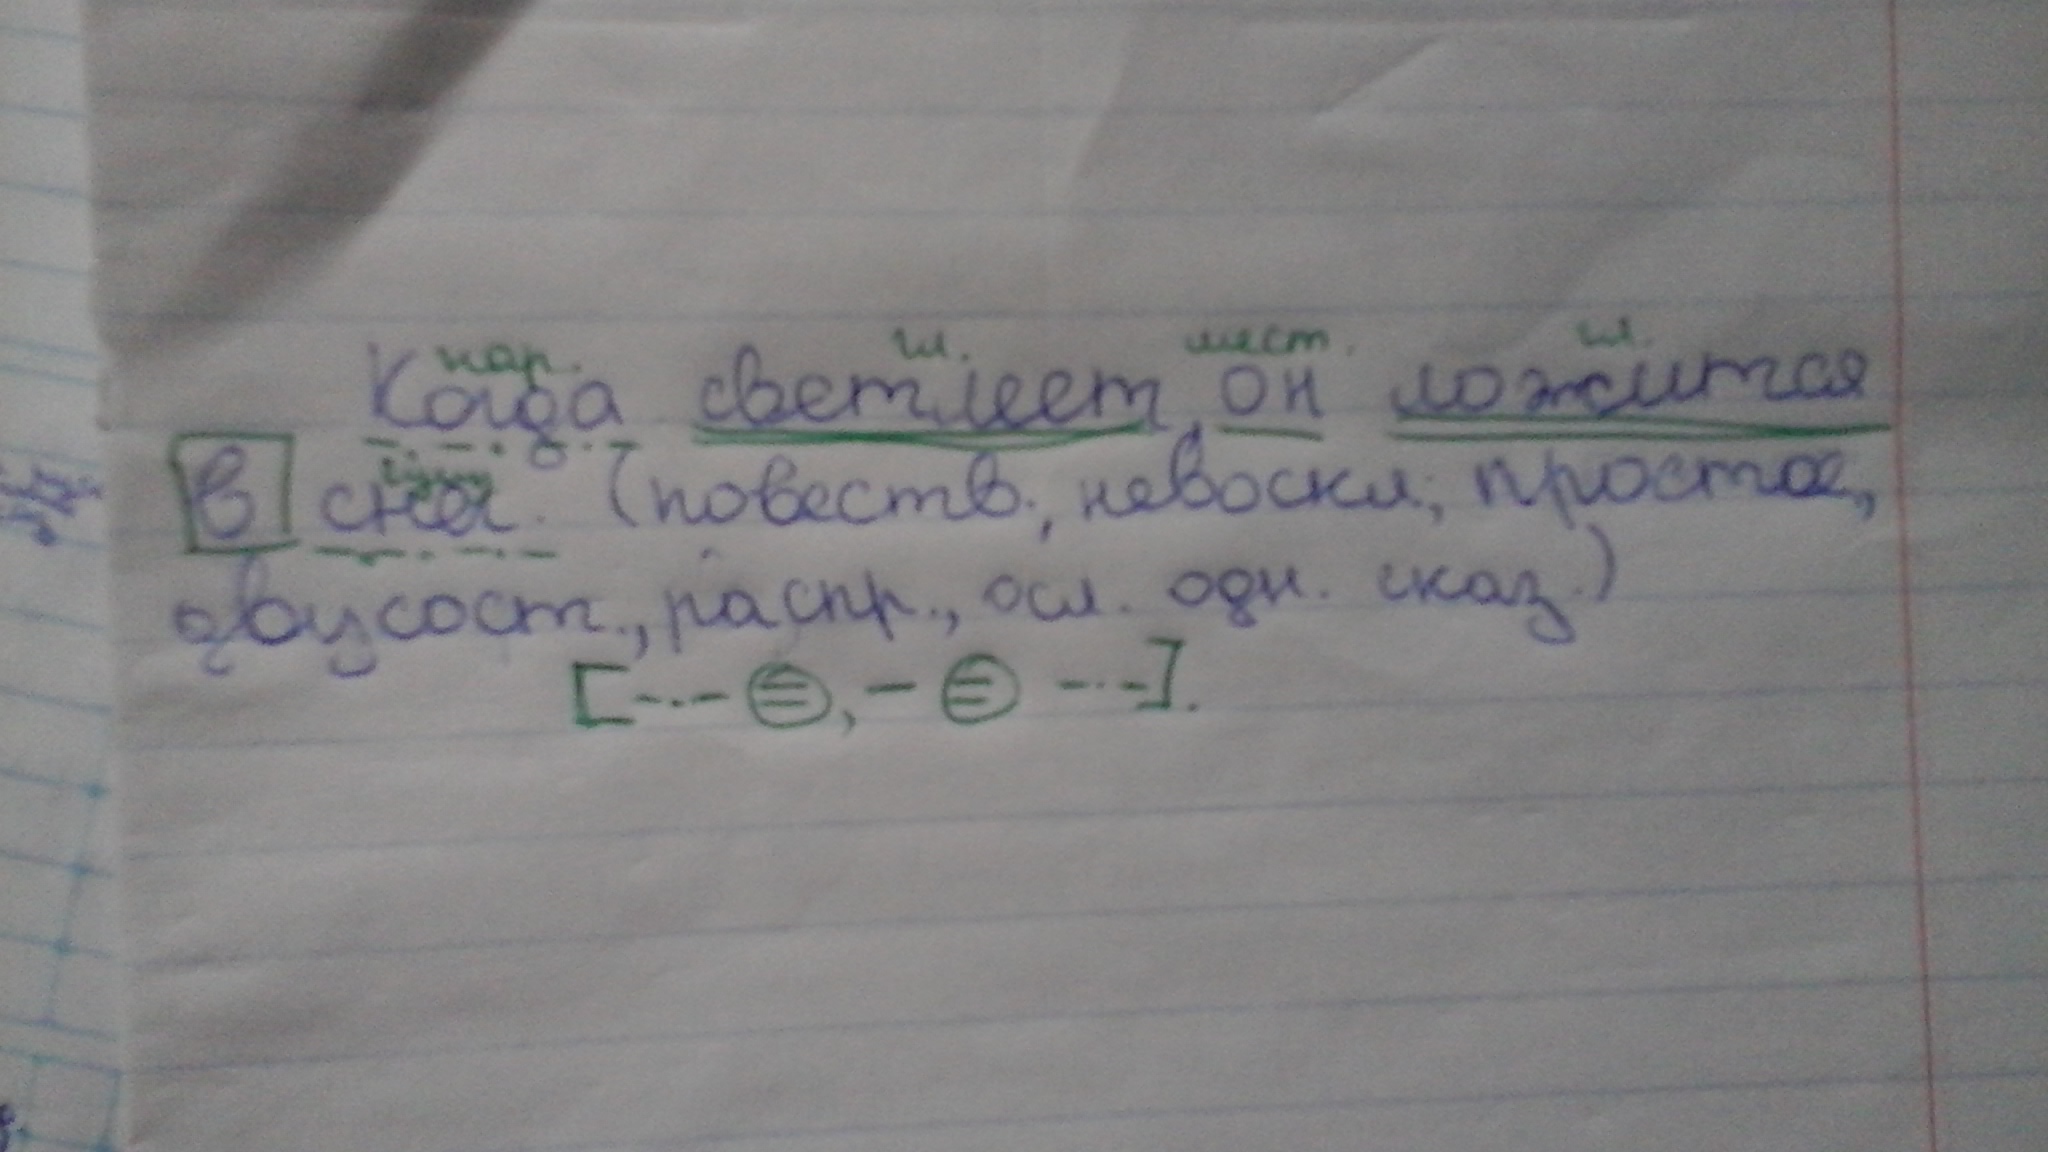 нар. гл. мест. гл.
Когда светлеет, он ложится
сущ.
в снег. (повеств., невоскл., простое,
двусост., распр., осл. одн. сказ.)
[-.-.- =, - = -.-.-].